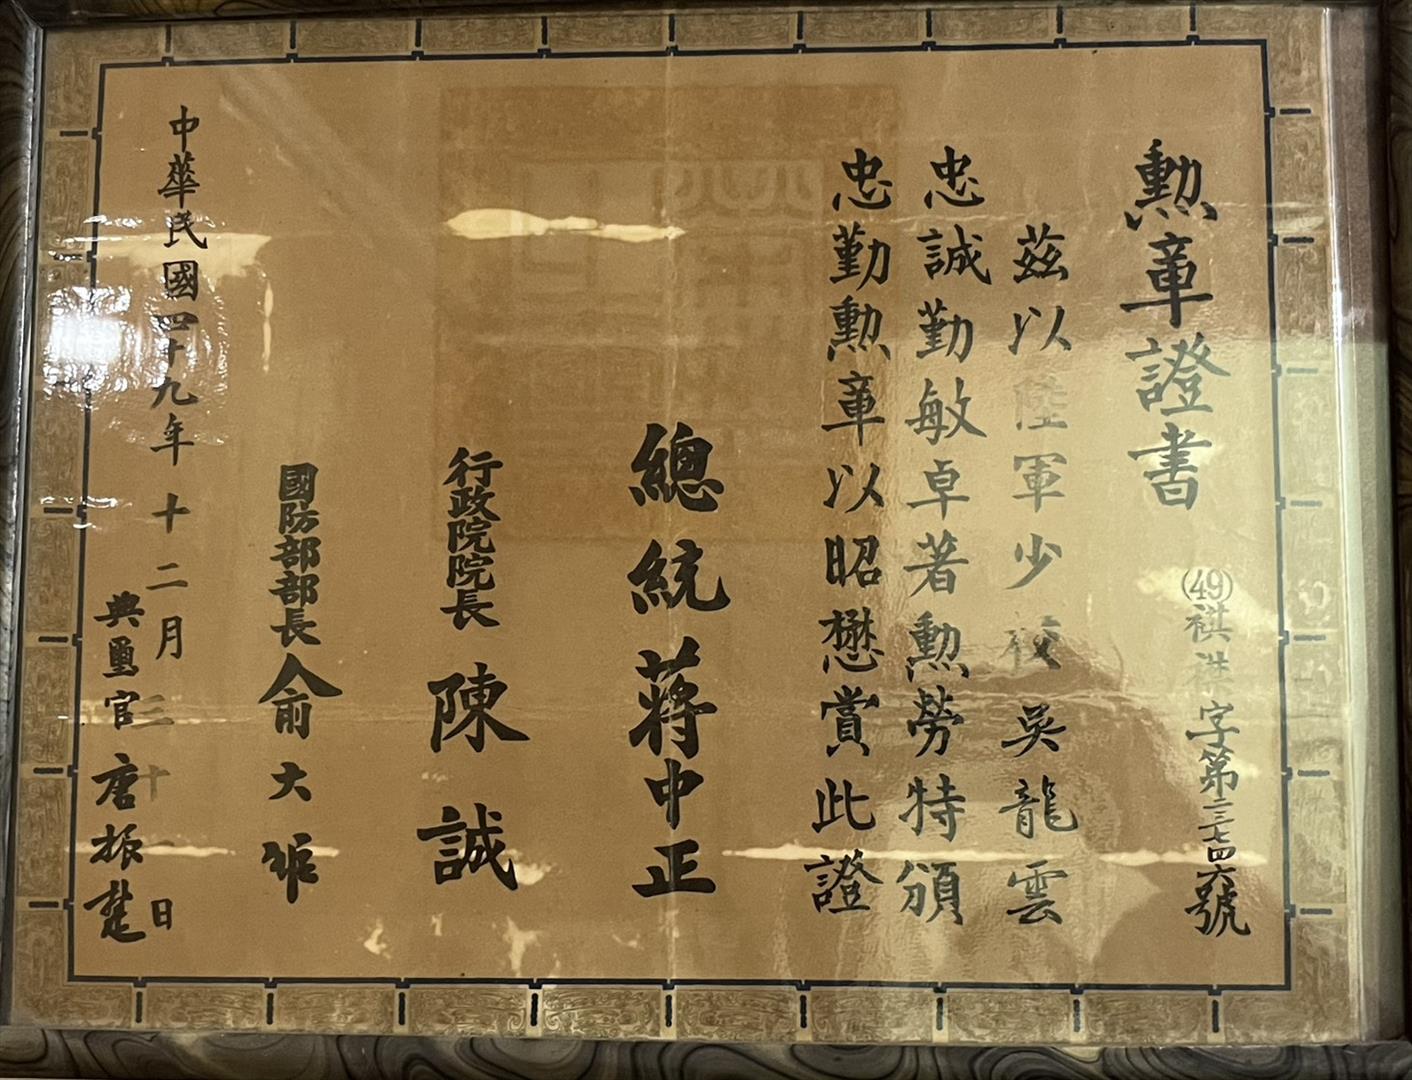 勲章證書
(49)祺祺字第三三七四六號
茲以陸軍少校吳龍雲
忠誠勤敏卓著勲勞特頒
忠勤勲章以昭懋賞此證
總統蔣中正
行政院院長 陳誠
國防部部長俞大維
中華民國四十九年十二月三十一日
典璽官唐振楚